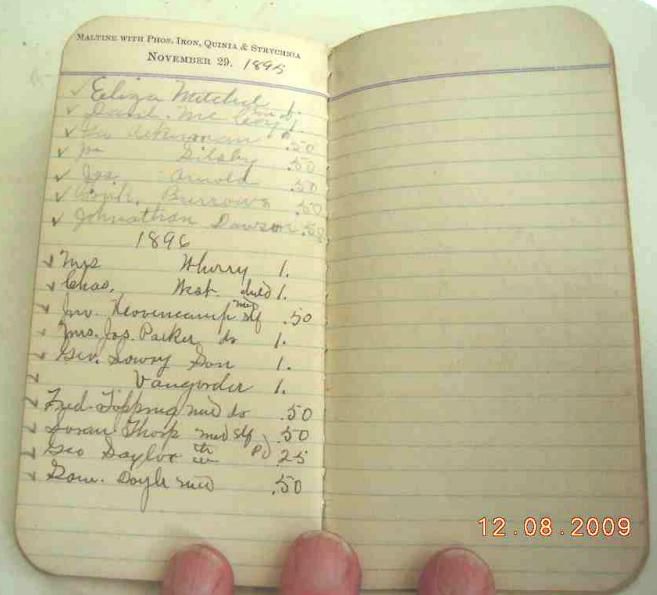 MALTINE WITH PHOS. IRON, QUINIA & STRYCHNIA
NOVEMBER 29. 1895
✓ Eliza Mitchel 1.
✓ Saml. Mc 1.
✓ Geo Ackerman .50
✓ Silsby .50
✓ Jas. Arnold .50
✓ Burrows .50
✓ Johnathan Dawson .50
1896
✓ Mrs Whurry 1.
✓ Chas. West child 1.
✓ Jno. Kovencamp med slf .50
✓ Mrs. Jas. Parker do 1.
✓ Geo. Lowry Son 1.
✓ Vangorder 1.
✓ Fred Topping med do .50
✓ Thorp med slf .50
✓ Geo Saylor Pd 25
✓ Doyle med .50
12.08.2009